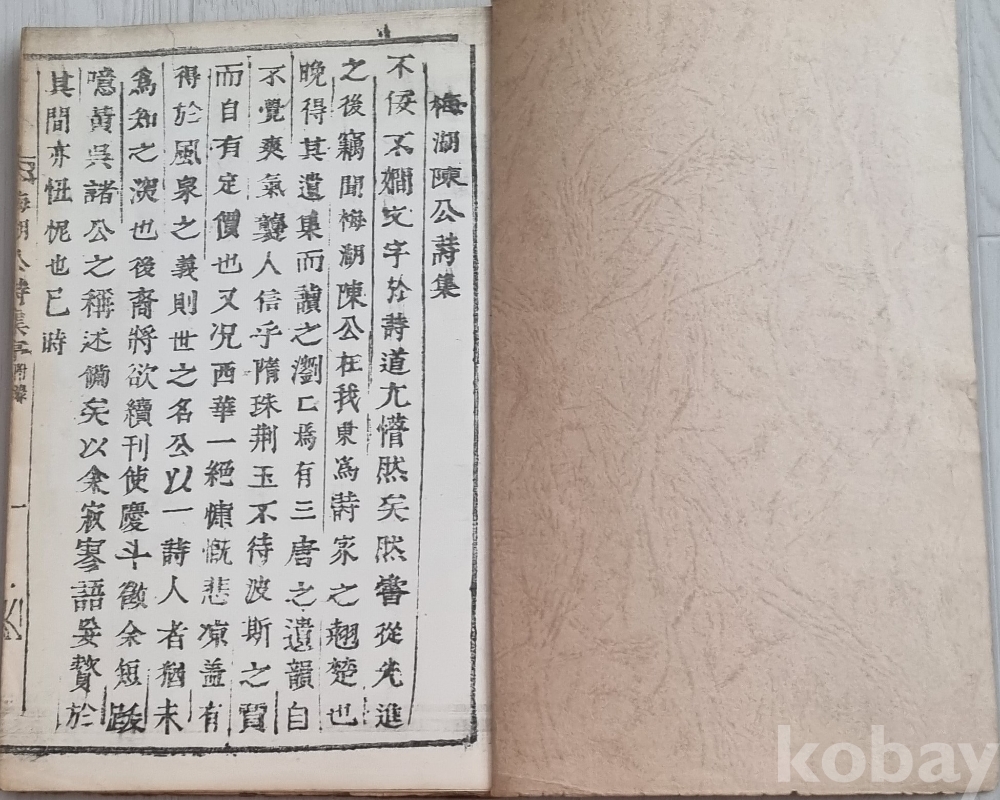 梅湖陳公詩集
不佞不嫺文字於詩道尤懵然矣然嘗從先進
之後竊聞梅湖陳公在我東爲詩家之翹楚也
晚得其遺集而讀之瀏乙焉有三唐之遺韻自
不覺爽氣襲人信乎隋珠荆玉不待波斯之賈
而自有定價也又况西華一絕慷慨悲凉盖有
得於風泉之義則世之名公以一詩人者猶未
爲知之深也後裔將欲續刊使慶斗徵余短跋
噫黄吳諸公之稱述備矣以余寂寥語妄贅於
其間亦忸怩也已時
梅湖公詩集 附錄
一
kobay